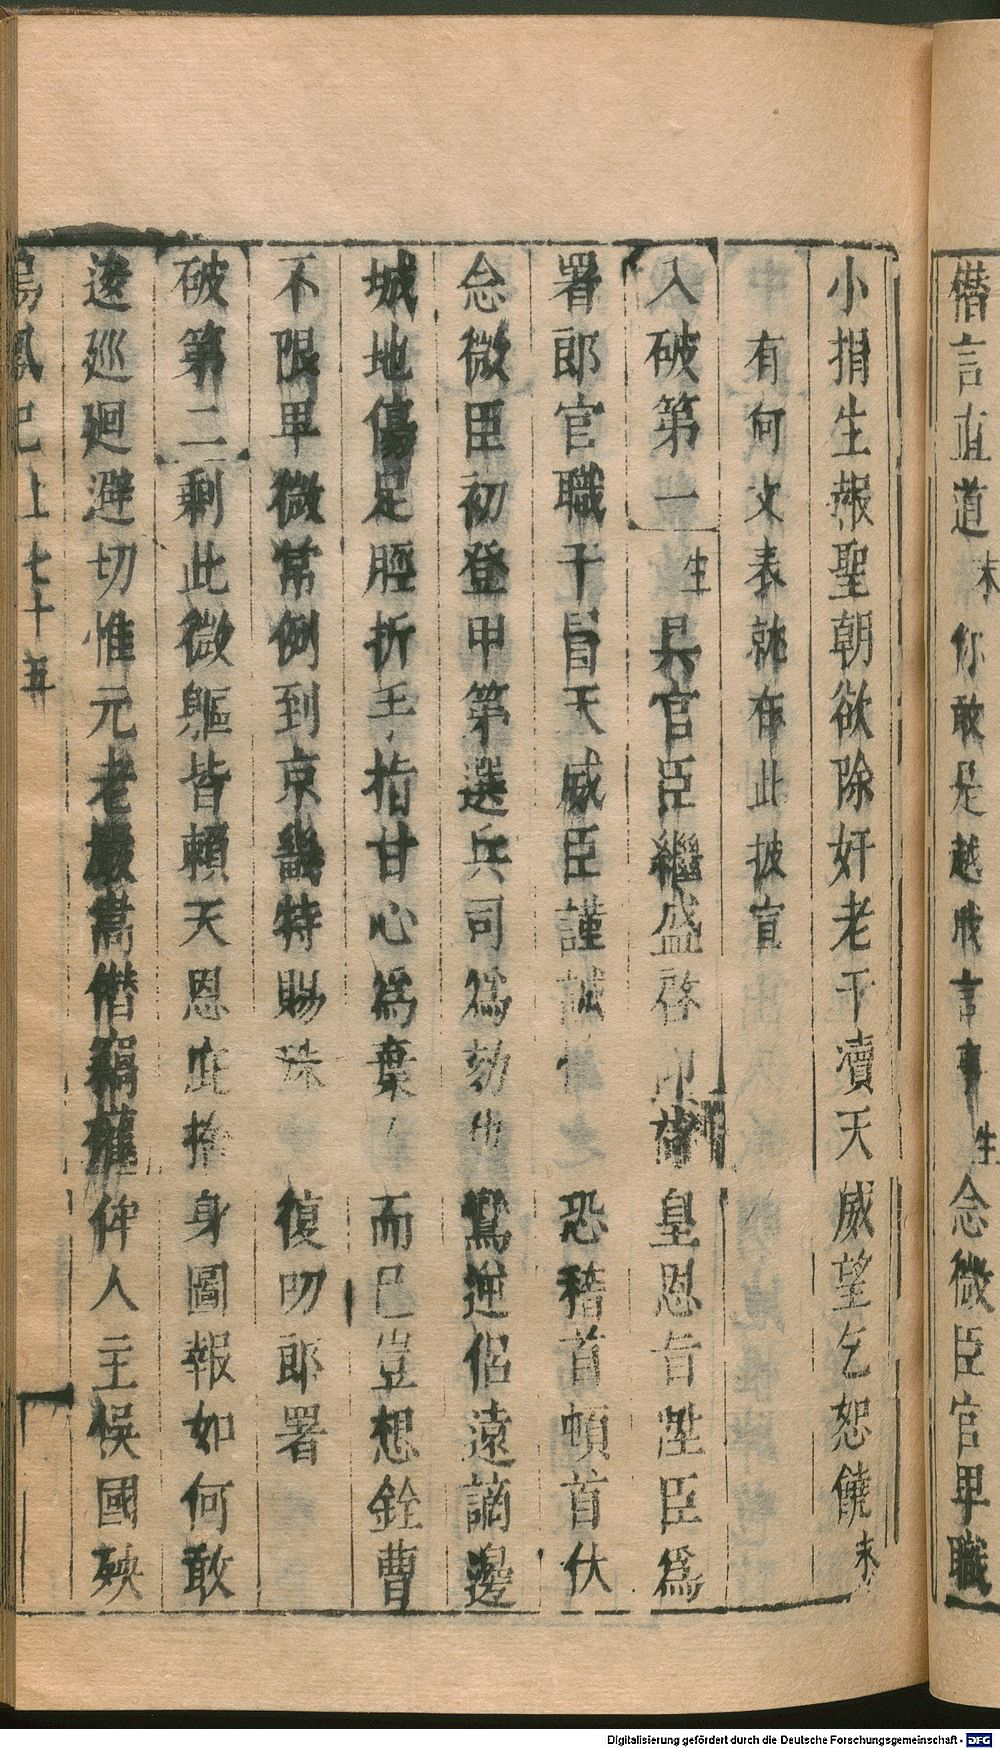 僭言直道末你敢是越職言事生念微臣官卑職
小捐生報聖朝欲除奸老干瀆天威望乞恕饒末
有何文表就在此披宣
入破第一生具官臣繼盛啓 皇恩旨陞臣爲
署郎官職干冒天威臣謹誠 恐稽首頓首伏
念微臣初登甲第選兵司爲劾 鸞逆侶遠謫邊
城地傷足脛折手指甘心爲棄 而已豈想銓曹
不限卑微常例到京畿特賜 復叨郎署
破第二剩此微軀皆賴天恩 身圖報如何敢
逡巡廻避切惟元老嚴嵩僭竊 俾人主悞國殃
鳴鳳記上七十五
Digitalisierung gefördert durch die Deutsche Forschungsgemeinschaft - DFG